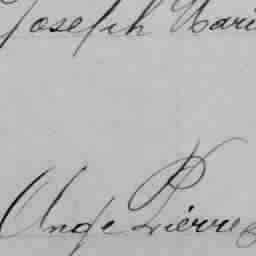 Joseph Mari
Ange Pierre